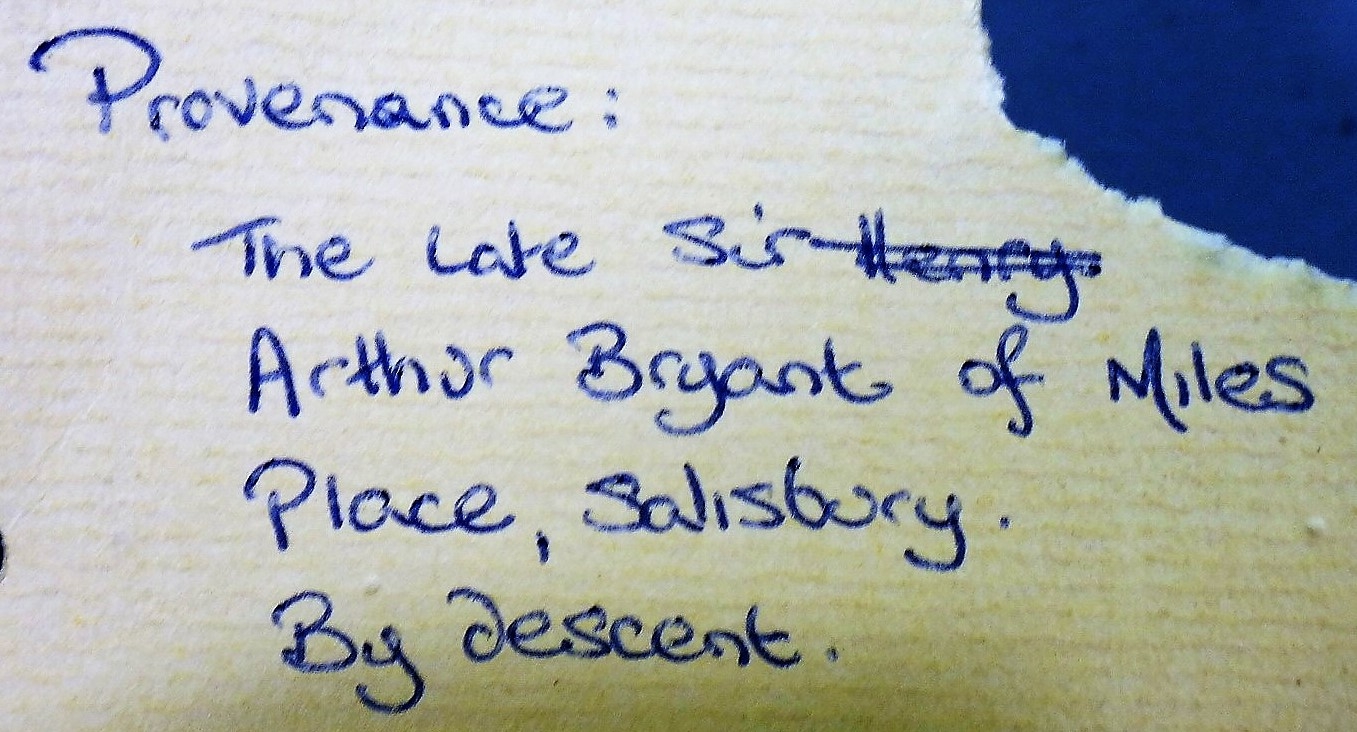 Provenance:
The Late Sir Henry
Arthur Bryant of Miles
Place, Salisbury.
By descent.